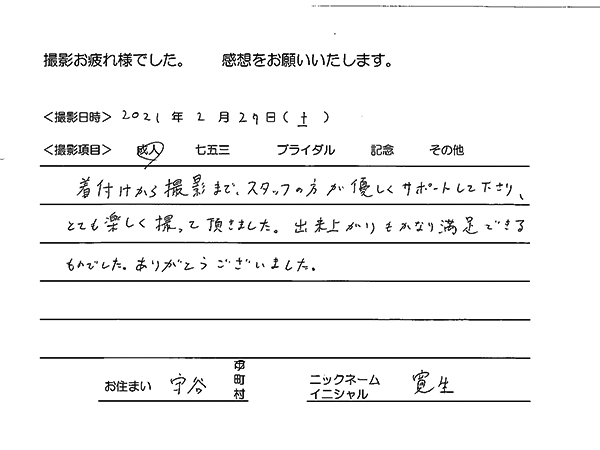 撮影お疲れ様でした。 感想をお願いいたします。
＜撮影日時＞ 2021 年 2 月 27日 ( 土 )
＜撮影項目＞ 成人 七五三 ブライダル 記念 その他
着付けから撮影まで、スタッフの方が優しくサポートして下さり、
とても楽しく撮って頂きました。出来上がりもかなり満足できる
ものでした。ありがとうございました。
お住まい 守谷 市町村 ニックネーム イニシャル 寛生